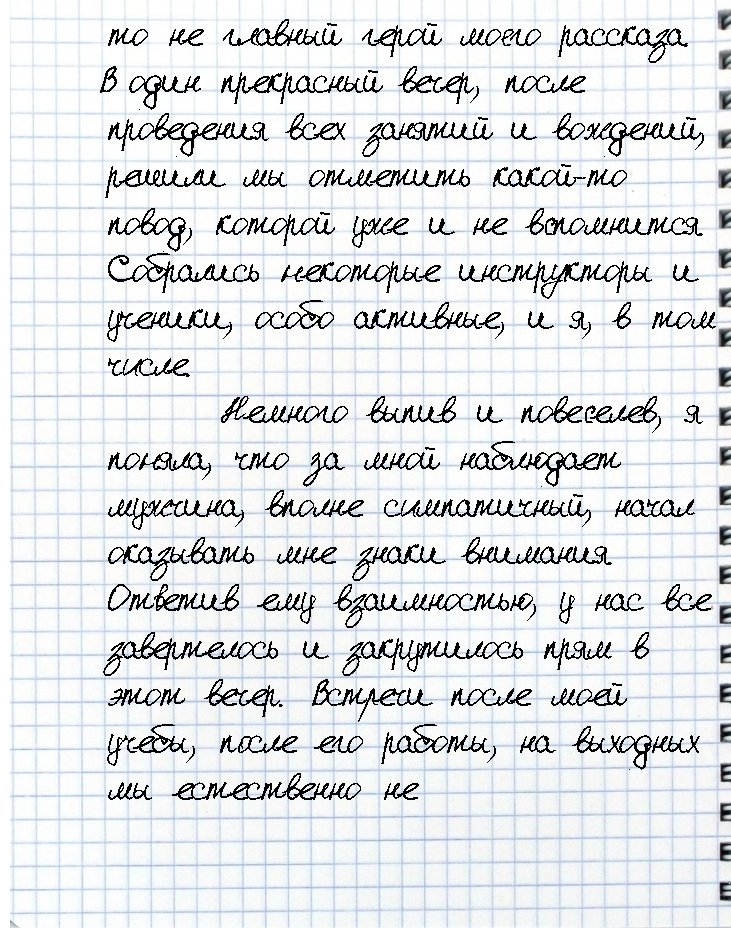 то не главный герой моего рассказа.
В один прекрасный вечер, после
проведения всех занятий и вождений,
решили мы отметить какой-то
повод, которой уже и не вспомнится.
Собрались некоторые инструкторы и
ученики, особо активные, и я, в том
числе.
Немного выпив и повеселев, я
поняла, что за мной наблюдает
мужчина, вполне симпатичный, начал
оказывать мне знаки внимания.
Ответив ему взаимностью, у нас все
завертелось и закрутилось прям в
этот вечер. Встречи после моей
учебы, после его работы, на выходных
мы естественно не